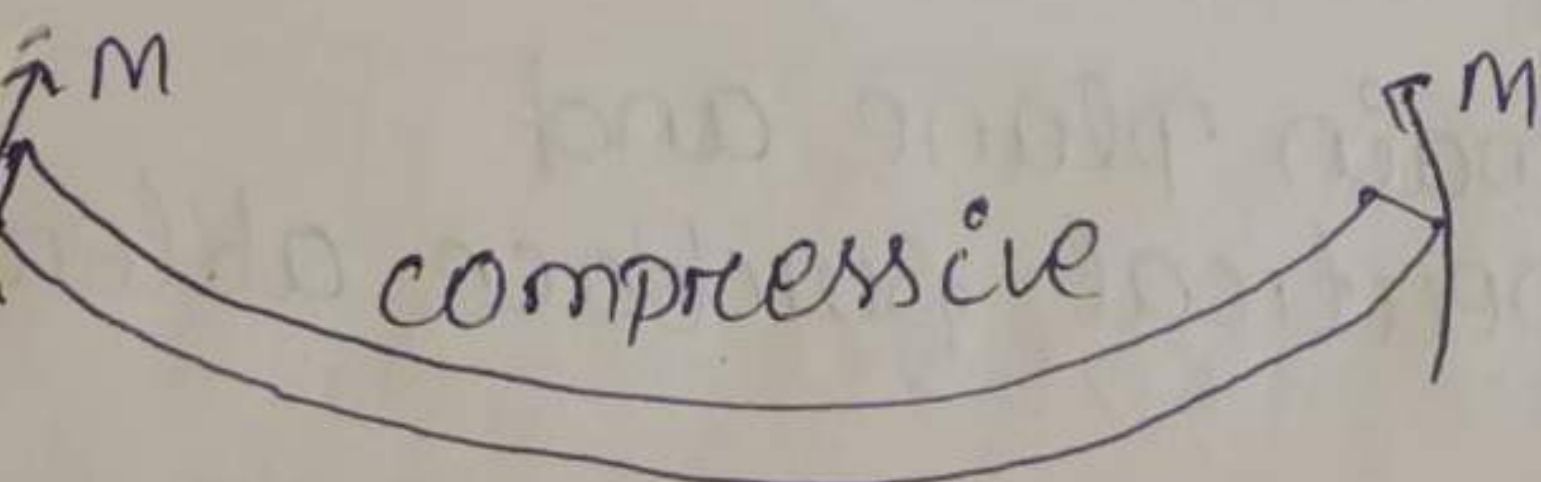 M
M
compressive